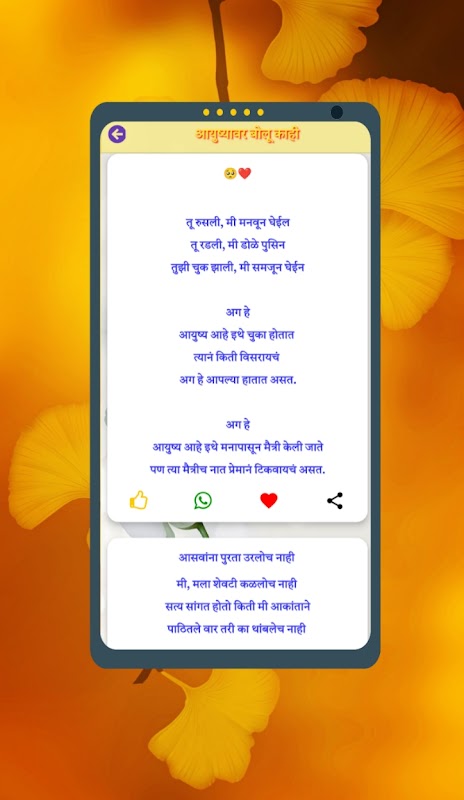 आयुष्यावर बोलू काही
🥺❤️
तू रुसली, मी मनवून घेईल
तू रडली, मी डोळे पुसिन
तुझी चुक झाली, मी समजून घेईन
अग हे
आयुष्य आहे इथे चुका होतात
त्यानं किती विसरायचं
अग हे आपल्या हातात असत.
अग हे
आयुष्य आहे इथे मनापासून मैत्री केली जाते
पण त्या मैत्रीच नात प्रेमानं टिकवायचं असत.
आसवांना पुरता उरलोच नाही
मी, मला शेवटी कळलोच नाही
सत्य सांगत होतो किती मी आकांताने
पाठितले वार तरी का थांबलेच नाही